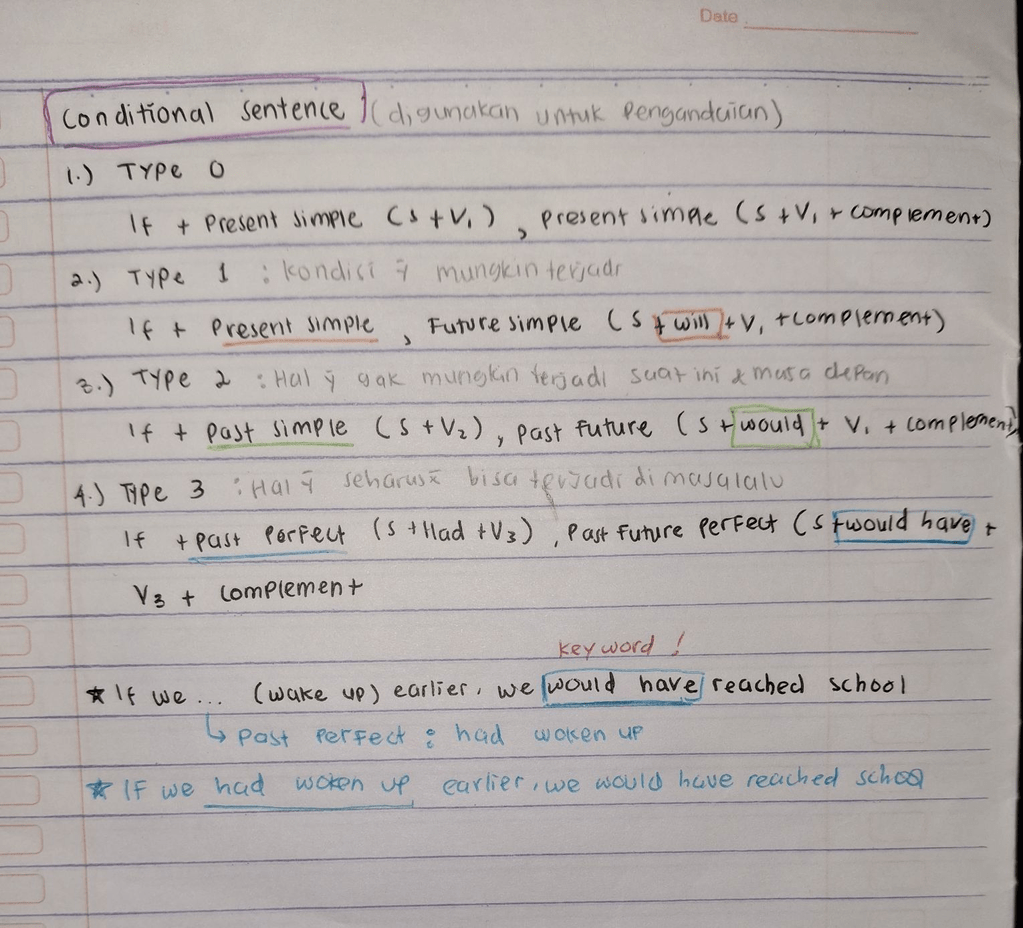 Date
Conditional sentence (digunakan untuk Pengandaian)
1.) Type 0
If + Present simple (S + V₁), present simple (S + V₁ + complement)
2.) Type 1 : kondisi ÿ mungkin terjadi
If + Present simple, Future simple (S + will + V₁ + complement)
3.) Type 2 : Hal ÿ gak mungkin terjadi saat ini & masa depan
If + past simple (S + V₂), past future (S + would + V₁ + complement)
4.) Type 3 : Hal ÿ seharus² bisa terjadi di masa lalu
If + past Perfect (S + Had + V₃), Past Future Perfect (S + would have +
V₃ + complement
keyword !
★ If we ... (wake up) earlier, we would have reached school
↳ past Perfect : had woken up
★ If we had woken up earlier, we would have reached school